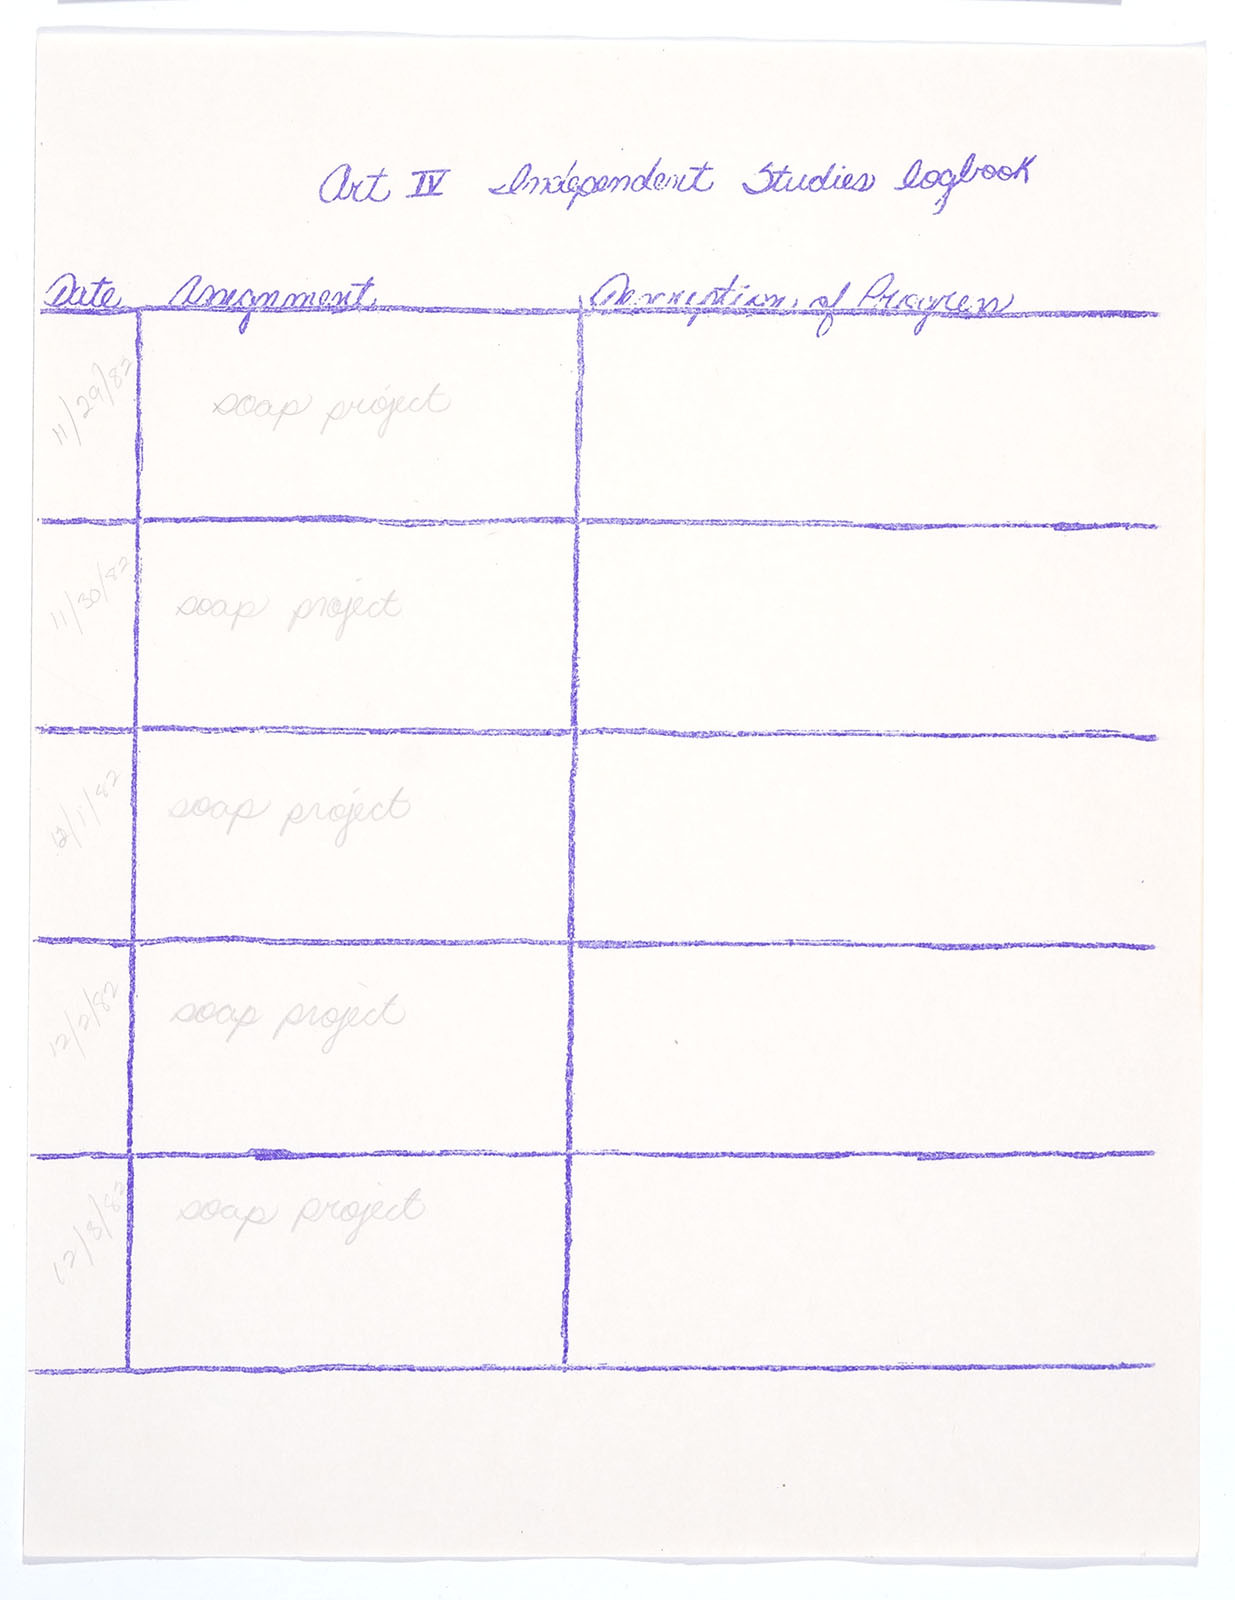 Art IV Independent Studies logbook
Date Assignment Description of Progress
11/29/82 soap project
11/30/82 soap project
12/1/82 soap project
12/2/82 soap project
12/3/82 soap project